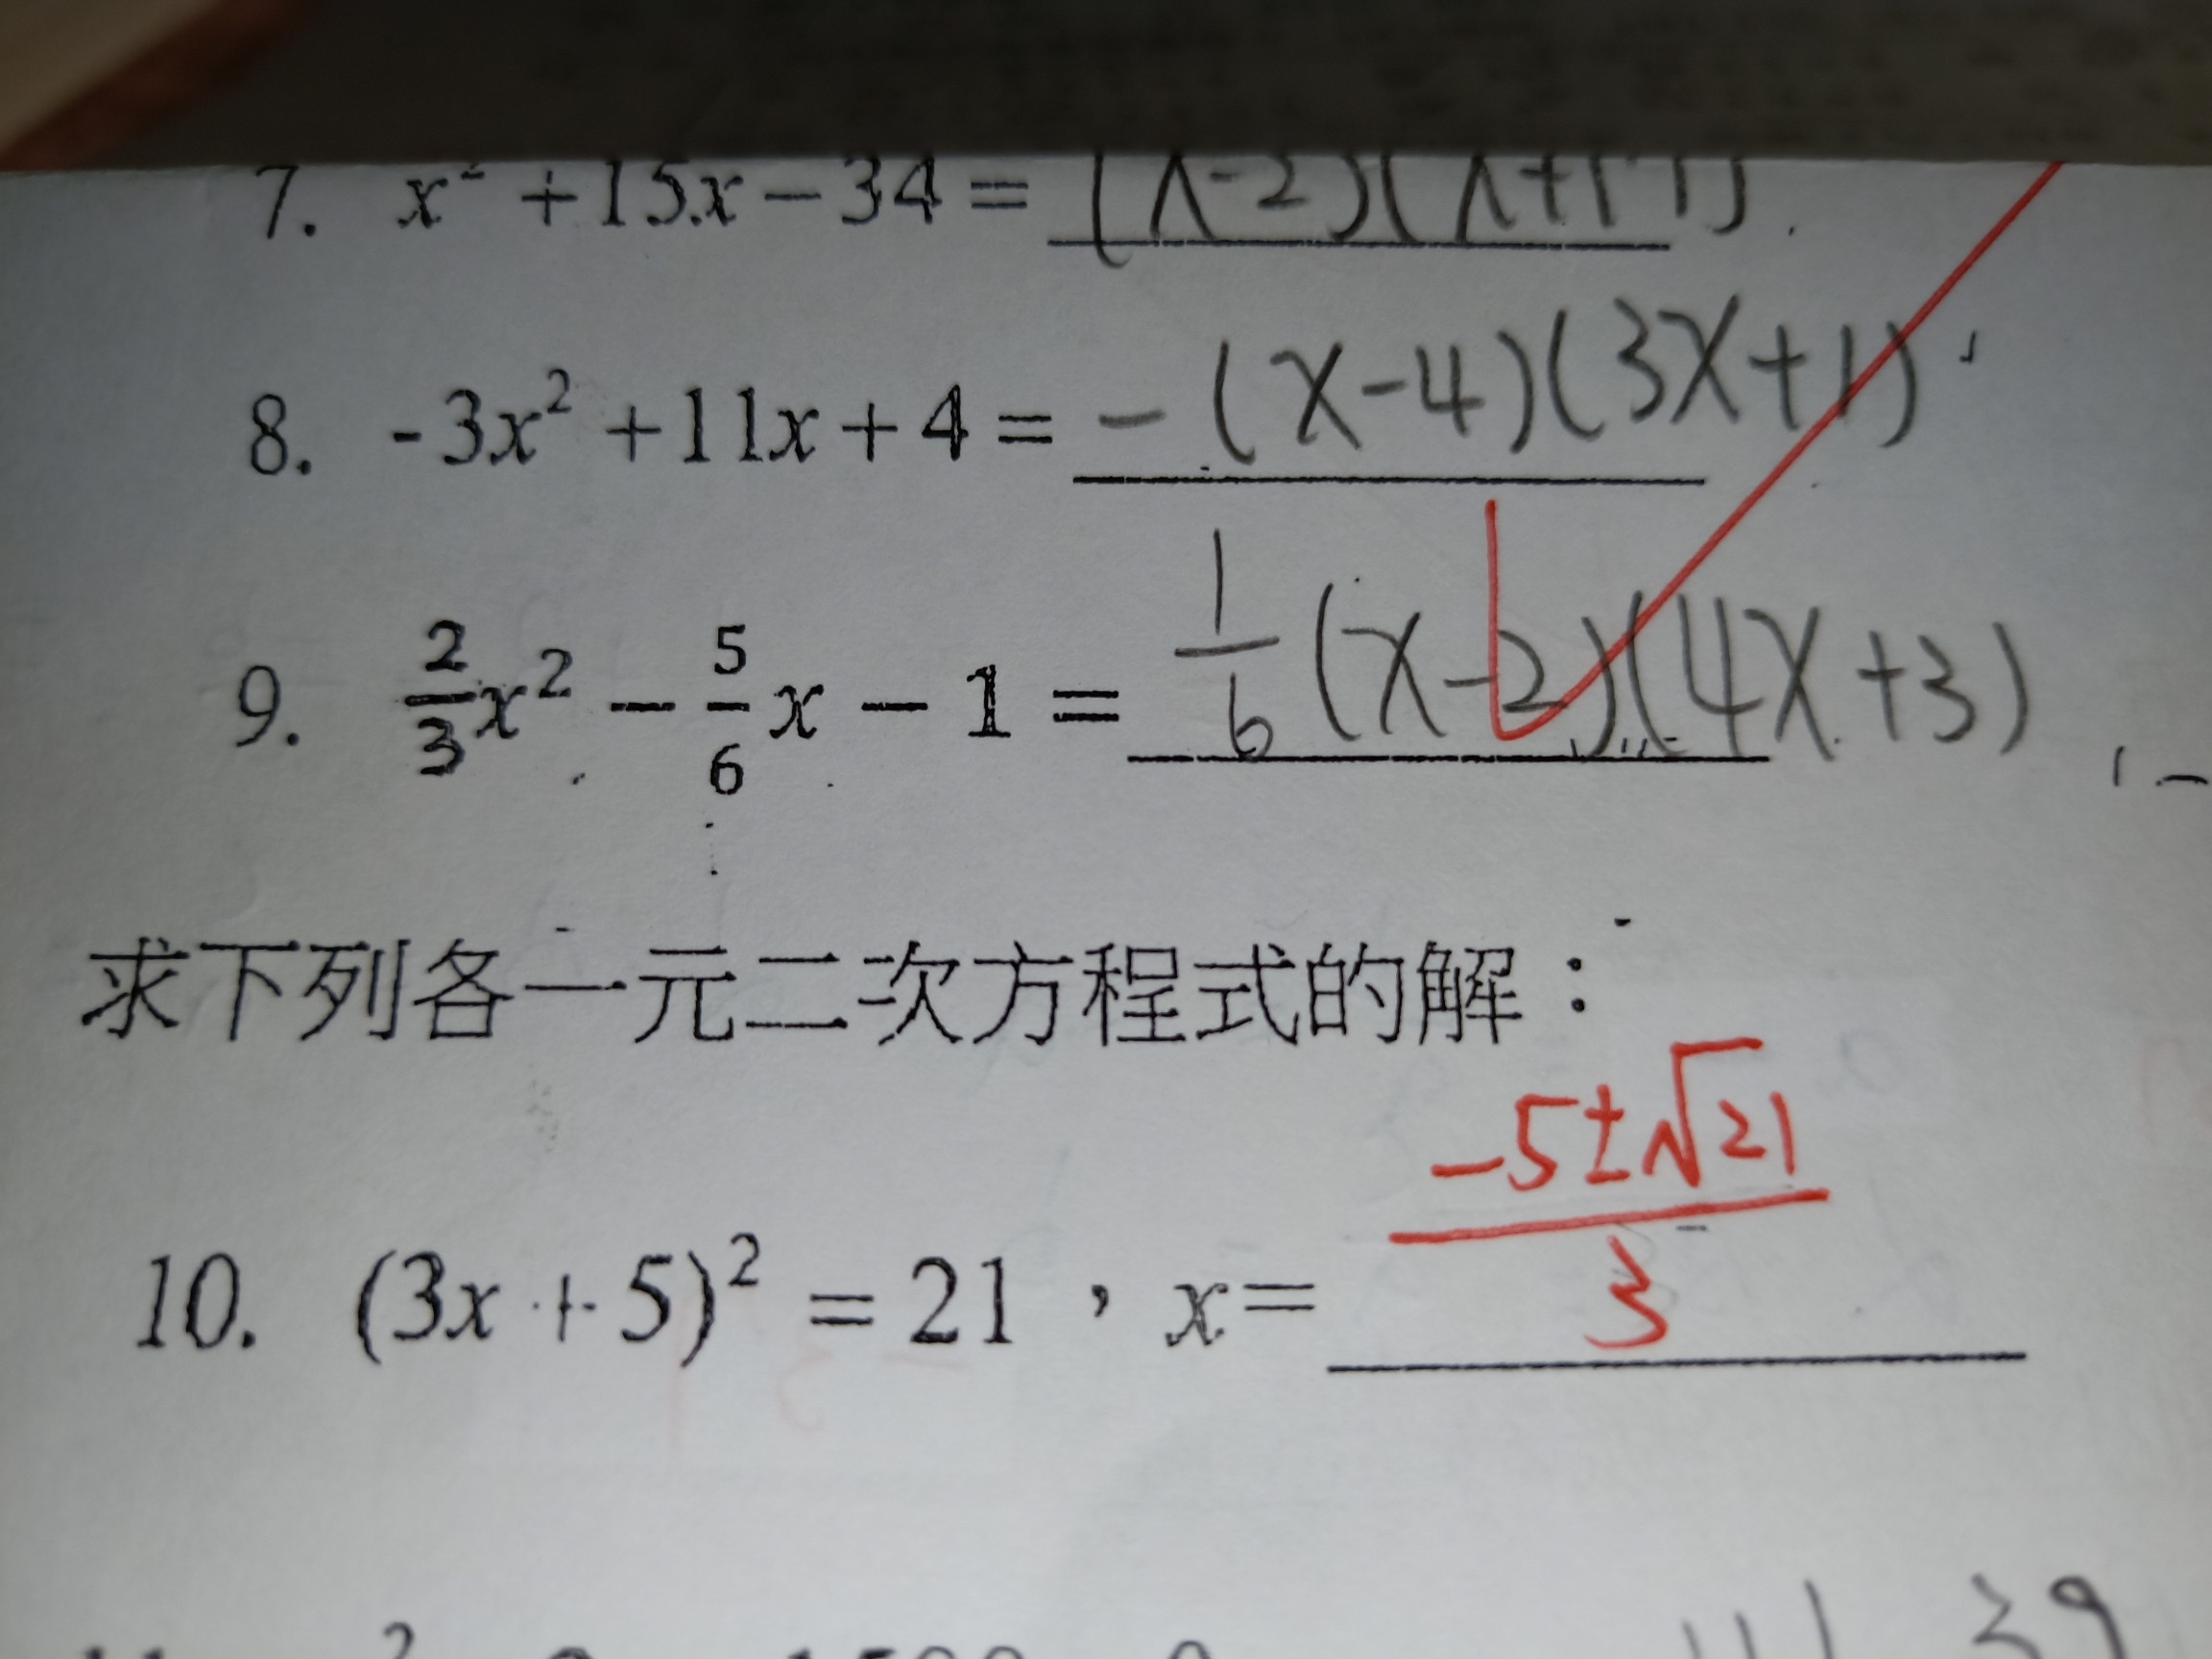 7. x² + 15x − 34 = (x-2)(x+17)
8. -3x² + 11x + 4 = -(x-4)(3x+1)
9. 2/3 x² − 5/6 x − 1 = 1/6 (x-2)(4x+3)
求下列各一元二次方程式的解：
10. (3x + 5)² = 21，x= (-5±√21)/3